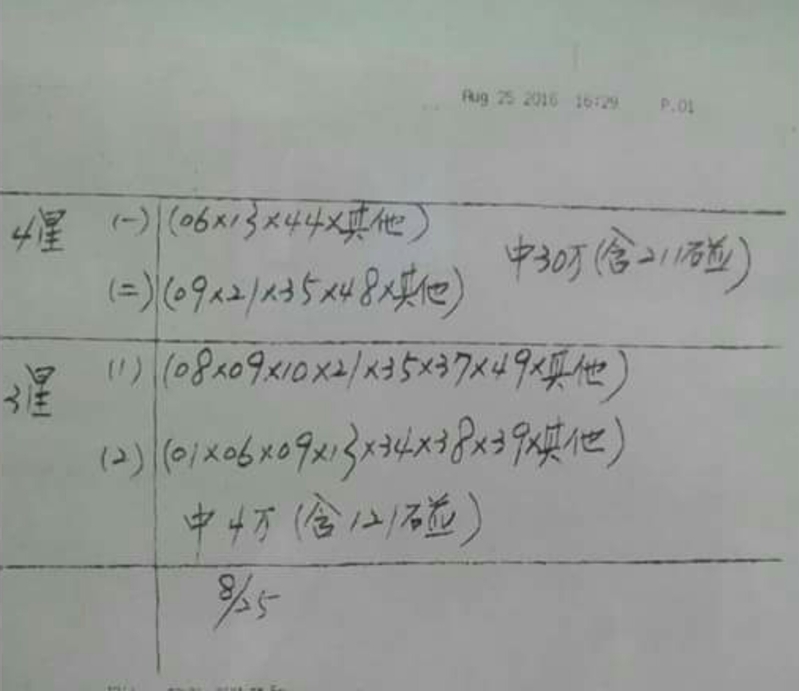 Aug 25 2016 16:29 P.01
4星 (一) (06×13×44×其他)
中30万(含211碰)
(二) (09×21×35×48×其他)
3星 (1) (08×09×10×21×35×37×49×其他)
(2) (01×06×09×13×34×38×39×其他)
中4万(含121碰)
8/25